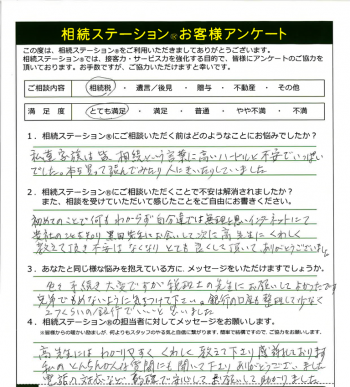 相続ステーション® お客様アンケート
この度は、相続ステーション®をご利用いただきましてありがとうございます。
相続ステーション®では、接客力・サービス力を強化する目的で、皆様にアンケートのご協力を
頂いております。お手数ですが、ご協力いただけますと幸いです。
ご相談内容 相続税 ・ 遺言／後見 ・ 贈与 ・ 不動産 ・ その他
満足度 とても満足 ・ 満足 ・ 普通 ・ やや不満 ・ 不満
1．相続ステーション®にご相談いただく前はどのようなことにお悩みでしたか？
私達家族は皆、相続という言葉に高いハードルと不安でいっぱい
でした。本を買って読んでみたり人にきいたりしていました
2．相続ステーション®にご相談いただくことで不安は解消されましたか？
また、相談を受けていただいて感じたことをご自由にお書きください。
初めてのことで何もわからず自分達では無理と思いインターネットにて
貴社のことを知り お会いして次に高先生にくわしく
教えて頂き不安はなくなりとても良くして頂いてありがとうございました
3．あなたと同じ様な悩みを抱えている方に、メッセージをいただけますでしょうか。
色々手続き大変ですが税理士の先生にお願いしてよかったです
兄弟でもめないように気をつけて下さい。銀行の口座も整理して少なく
2つくらいの銀行でいいと思いました
4．相続ステーション®の担当者に対してメッセージをお願いします。
※皆様からの暖かい励ましが、何よりもスタッフのやる気と自信に繋がります。簡単で結構ですので、ご協力をお願いします。
高先生には わかりやすく くわしく 教えて下さり感謝しております
私のとんちんかんな質問にも聞いて下さりありがとうございました
電話の対応など 的確で安心して お願いして助かりました